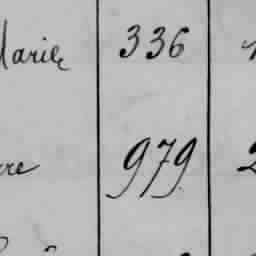 Marie 336
rre 979 2